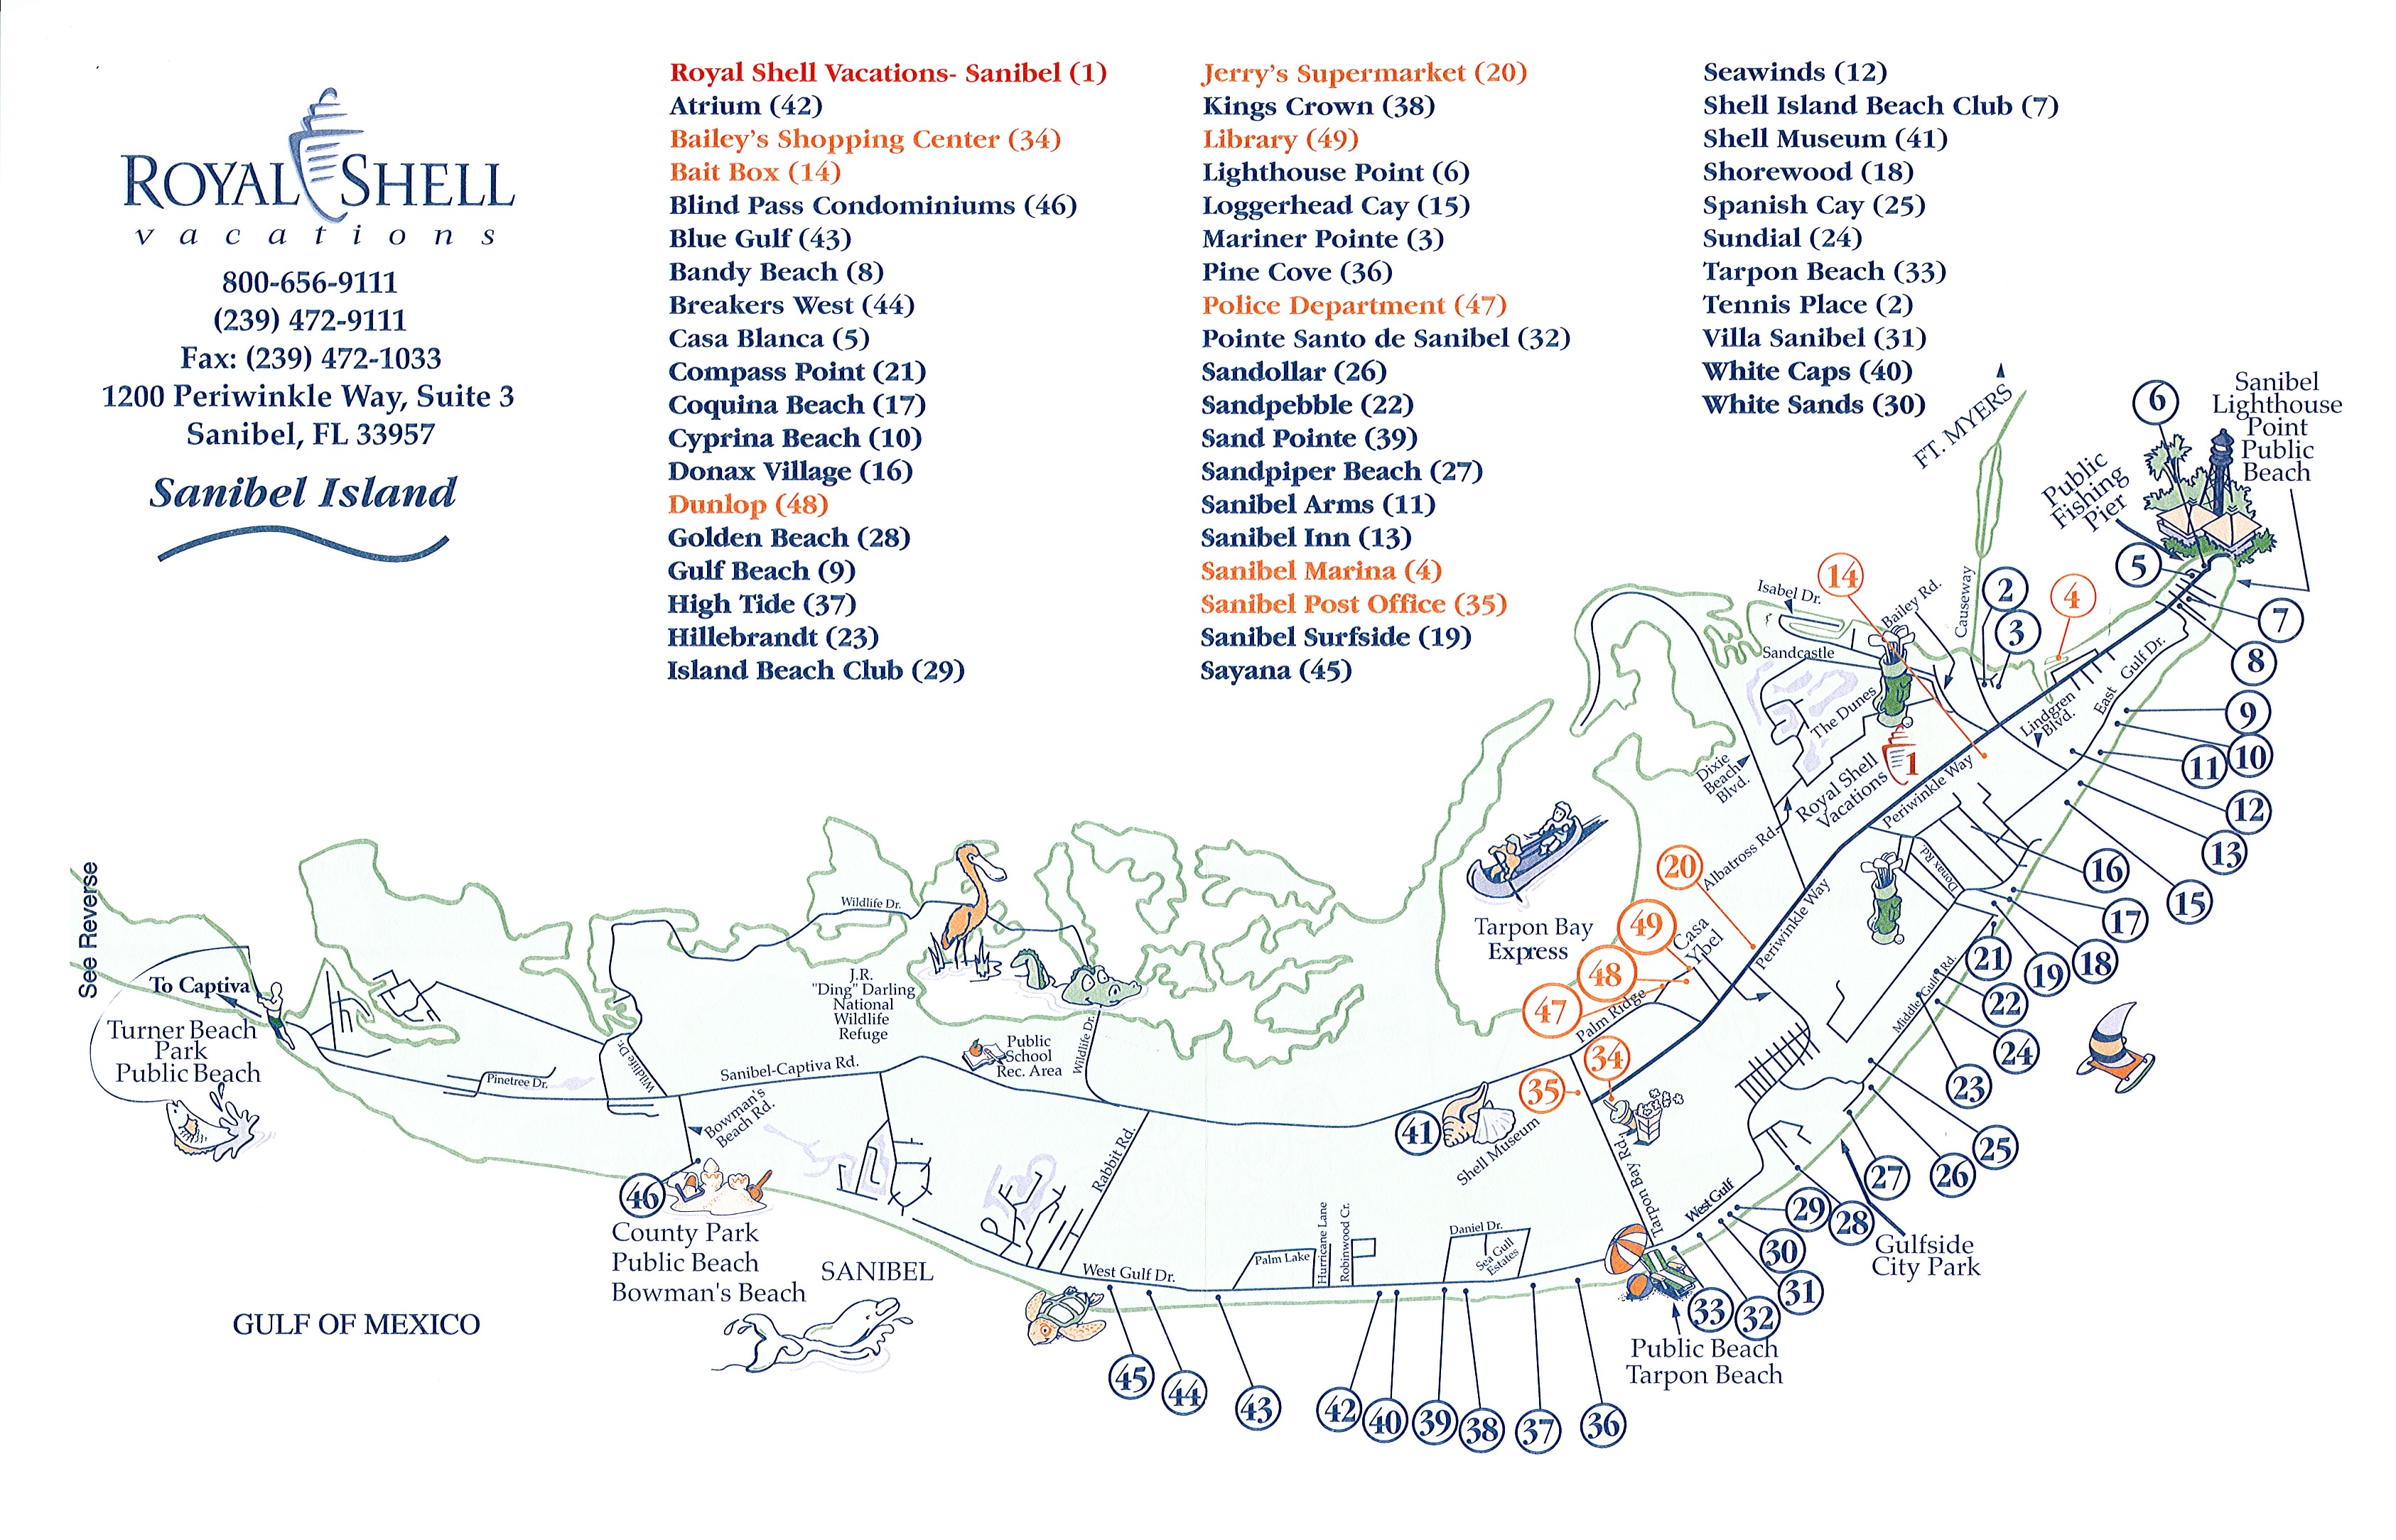 ROYAL SHELL
vacations
800-656-9111
(239) 472-9111
Fax: (239) 472-1033
1200 Periwinkle Way, Suite 3
Sanibel, FL 33957
Sanibel Island
Royal Shell Vacations- Sanibel (1)
Atrium (42)
Bailey's Shopping Center (34)
Bait Box (14)
Blind Pass Condominiums (46)
Blue Gulf (43)
Bandy Beach (8)
Breakers West (44)
Casa Blanca (5)
Compass Point (21)
Coquina Beach (17)
Cyprina Beach (10)
Donax Village (16)
Dunlop (48)
Golden Beach (28)
Gulf Beach (9)
High Tide (37)
Hillebrandt (23)
Island Beach Club (29)
Jerry's Supermarket (20)
Kings Crown (38)
Library (49)
Lighthouse Point (6)
Loggerhead Cay (15)
Mariner Pointe (3)
Pine Cove (36)
Police Department (47)
Pointe Santo de Sanibel (32)
Sandollar (26)
Sandpebble (22)
Sand Pointe (39)
Sandpiper Beach (27)
Sanibel Arms (11)
Sanibel Inn (13)
Sanibel Marina (4)
Sanibel Post Office (35)
Sanibel Surfside (19)
Sayana (45)
Seawinds (12)
Shell Island Beach Club (7)
Shell Museum (41)
Shorewood (18)
Spanish Cay (25)
Sundial (24)
Tarpon Beach (33)
Tennis Place (2)
Villa Sanibel (31)
White Caps (40)
White Sands (30)
FT. MYERS
6
Sanibel
Lighthouse
Point
Public
Beach
Public
Fishing
Pier
5
7
8
9
10
11
12
13
14
Isabel Dr.
Bailey Rd.
Causeway
2
3
4
Sandcastle
The Dunes
East Gulf Dr.
Lindgren
Blvd.
Dixie
Beach
Blvd.
Royal Shell
Vacations
1
Periwinkle Way
Albatross Rd.
Donax Rd.
16
15
17
18
19
21
22
24
23
20
Periwinkle Way
49
Casa
Ybel
48
47
Palm Ridge
Middle Gulf Rd.
Tarpon Bay
Express
34
35
41
Shell Museum
Tarpon Bay Rd.
West Gulf
25
26
27
28
29
30
31
32
33
Gulfside
City Park
Public Beach
Tarpon Beach
Wildlife Dr.
J.R.
"Ding" Darling
National
Wildlife
Refuge
Public
School
Rec. Area
Wildlife Dr.
Sanibel-Captiva Rd.
See Reverse
To Captiva
Turner Beach
Park
Public Beach
Pinetree Dr.
Wildlife Dr.
Bowman's
Beach Rd.
46
County Park
Public Beach
Bowman's Beach
SANIBEL
GULF OF MEXICO
Rabbit Rd.
West Gulf Dr.
Palm Lake
Hurricane Lane
Robinwood Cr.
Daniel Dr.
Sea Gull
Estates
45
44
43
42
40
39
38
37
36